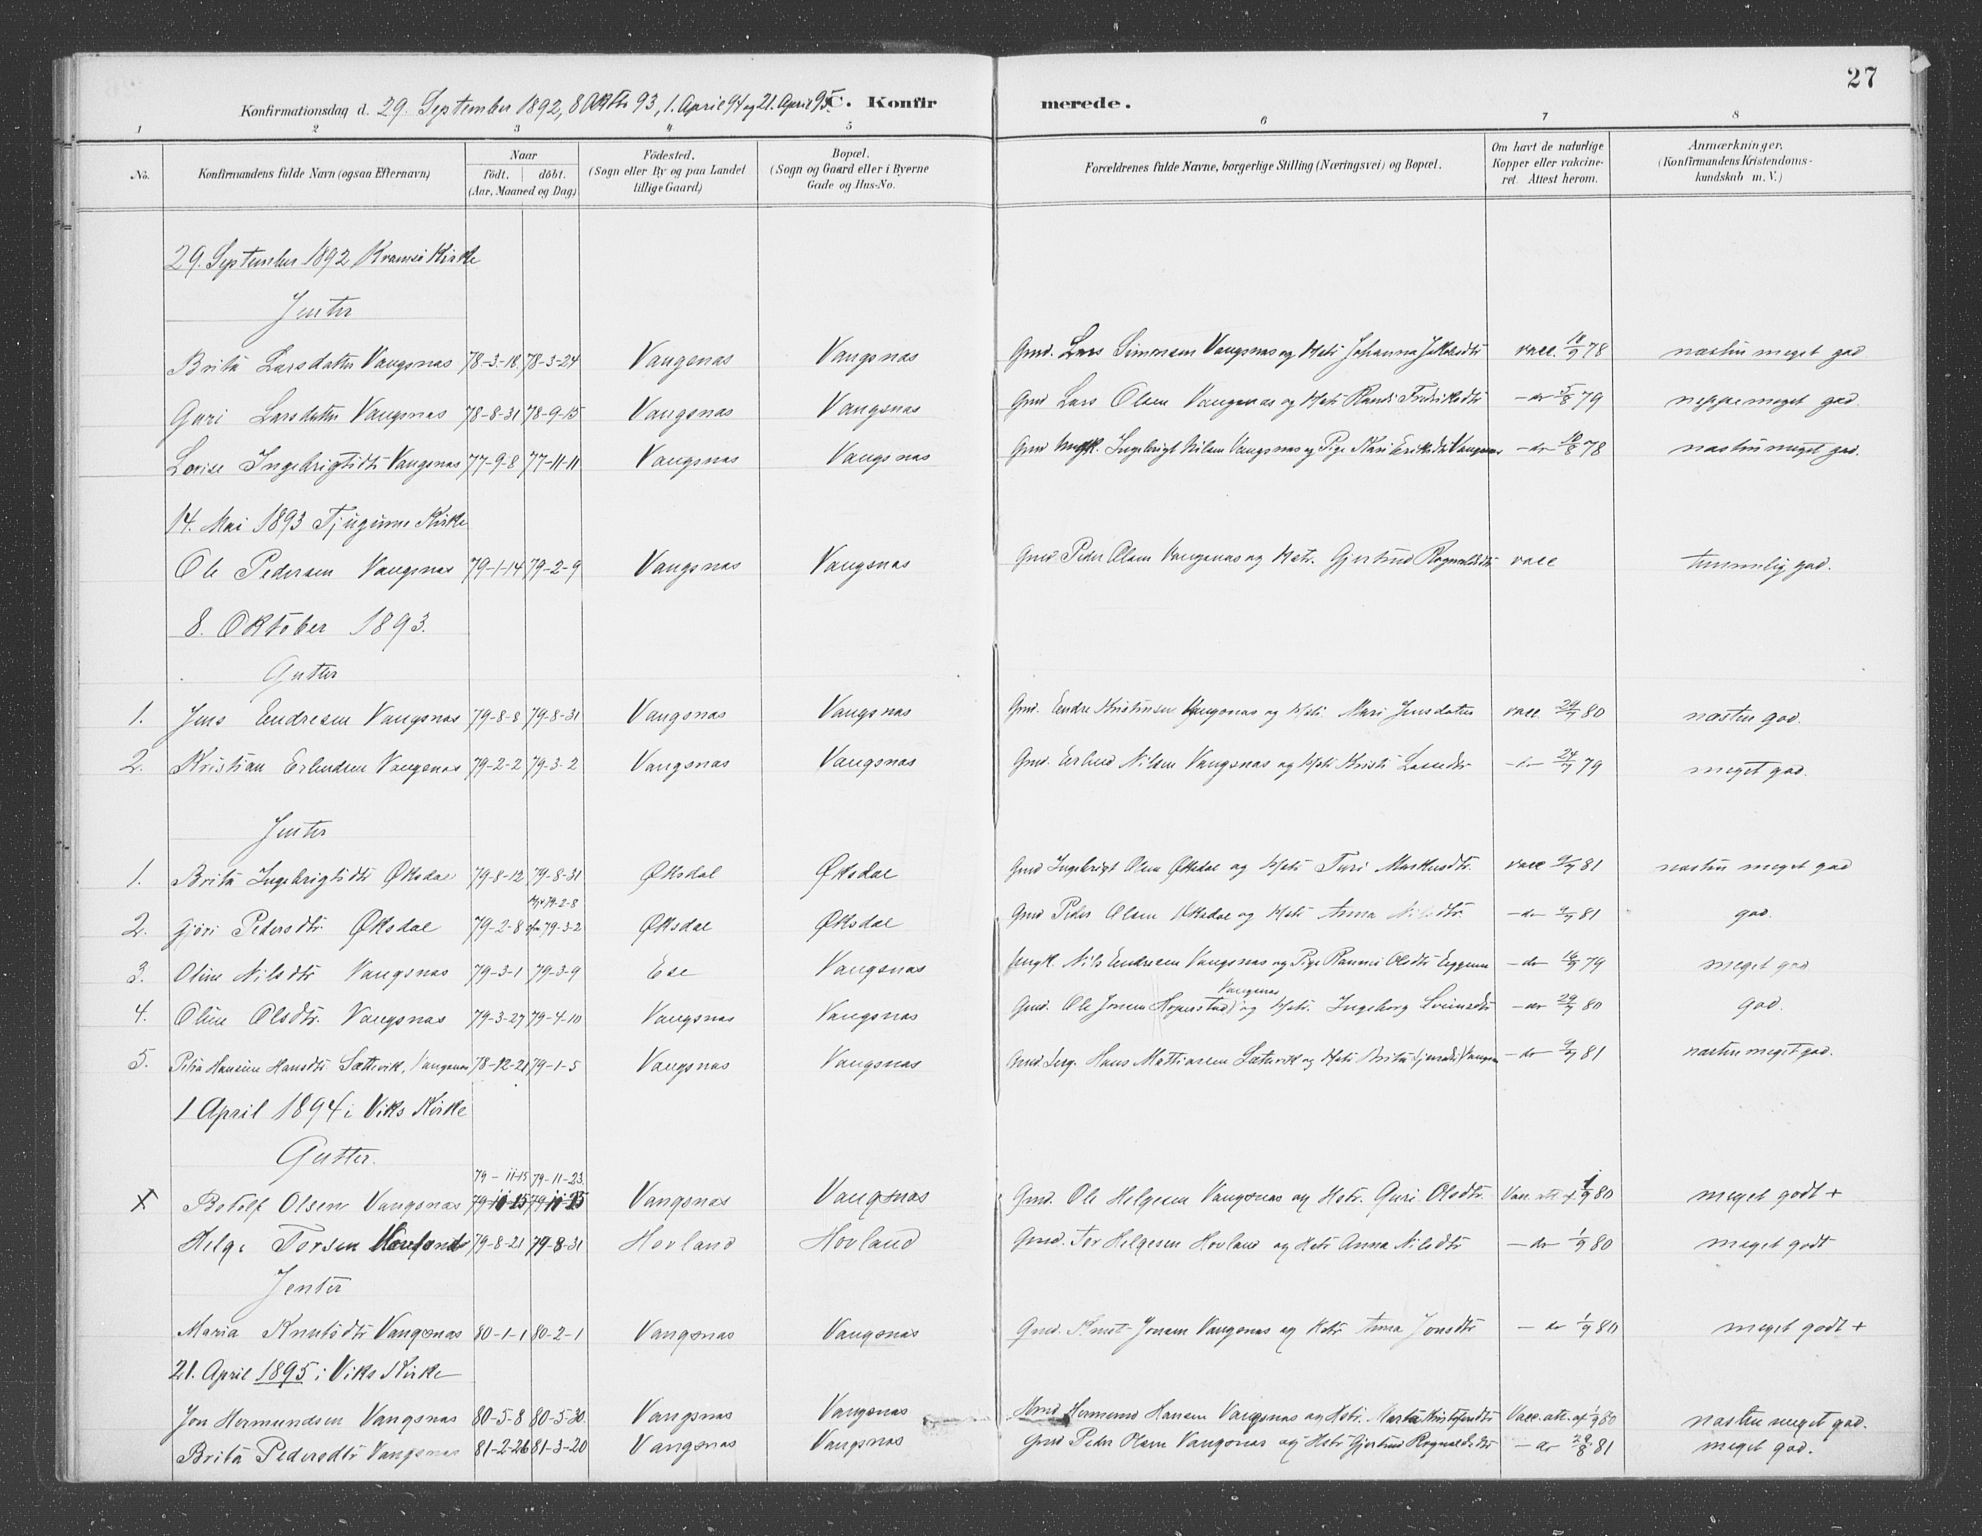 27
Konfirmationsdag d. 29. September 1892, 8 Oktbr 93, 1. April 94 og 21. April 95. C. Konfirmerede.
1 2 3 4 5 6 7 8
No. Konfirmandens fulde Navn (ogsaa Efternavn) Naar født. døbt. (Aar, Maaned og Dag) Fødested. (Sogn eller By og paa Landet tillige Gaard) Bopæl. (Sogn og Gaard eller i Byerne Gade og Hus-No. Forældrenes fulde Navne, borgerlige Stilling (Næringsvei) og Bopæl. Om havt de naturlige Kopper eller vakcineret. Attest herom. Anmærkninger. (Konfirmandens Kristendomskundskab m. V.)
29. September 1892 Kirke
Jenter
Brita Larsdatter Vangsnæs 78-3-18 78-3-24 Vangsnæs Vangsnæs Gmd. Lars Simonsen Vangsnæs og Hstr Johanna Jakobsdtr vacc. 78 næsten meget god
Guri Larsdatter Vangsnæs 78-8-31 78-9-15 Vangsnæs Vangsnæs Gmd Lars Olsen Vangsnæs og Hstr Randi Fredriksdtr -do- 5/8 79 neppe meget god
Lovise Ingebrigtsdtr Vangsnæs 77-9-8 77-11-11 Vangsnæs Vangsnæs Ungk. Ingebrigt Nilsen Vangsnæs og Pige Kari Eriksdtr Vangsnæs -do- 78 næsten meget god.
14. Mai 1893 Tjugums Kirke
Ole Pedersen Vangsnæs 79-1-14 79-2-9 Vangsnæs Vangsnæs Gmd Peder Olsen Vangsnæs og Hstr. Gjertrud Rognaldsdtr vacc temmelig god.
8. Oktober 1893.
Gutter
1. Jens Endresen Vangsnæs 79-8-8 79-8-31 Vangsnæs Vangsnæs Gmd. Endre Kristensen Vangsnæs og Hstr. Mari Jensdatter vacc. 80 næsten god.
2. Kristian Erlendsen Vangsnæs 79-2-2 79-3-2 Vangsnæs Vangsnæs Gmd. Erlend Nilsen Vangsnæs og Hstr Kristi Larsdtr 79 meget god.
Jenter
1. Brita Ingebrigtsdtr Øksdal 79-8-12 79-8-31 Øksdal Øksdal Gmd Ingebrigt Olsen Øksdal og Hstr Turi Markusdtr. vacc 81 næsten meget god
2. Gjøri Pedersdtr. Øksdal 79-2-8 79-3-2 Øksdal Øksdal Gmd Peder Olsen Øksdal og Hstr Anna Nilsdtr. -do- 81 god.
3. Oline Nilsdtr Vangsnæs 79-3-1 79-3-9 Ese Vangsnæs Ungk. Nils Endresen Vangsnæs og Pige Olsdtr -do- 79 meget god
4. Oline Olsdtr. Vangsnæs 79-3-27 79-4-10 Vangsnæs Vangsnæs Gmd. Ole Jonsen Hopperstad Vangsnæs og Hstr. Ingeborg Sveinsdtr -do- 80 god.
5. Petra Hansine Hansdtr Sættevik, Vangsnæs 78-12-21 79-1-5 Vangsnæs Vangsnæs Hans Mathiasen Sættevik og Hstr Brita Vangsnæs -do- 81 næsten meget god.
1 April 1894 i Viks Kirke
Gutter.
79-11-15 79-11-23
X Botolf Olsen Vangsnæs Vangsnæs Vangsnæs Gmd. Ole Helgesen Vangsnæs og Hstr. Guri Olsdtr. Vac. att. af 1/9 80 meget godt +
Helge Torsen Hovland 79-8-21 79-8-31 Hovland Hovland Gmd. Tor Helgesen Hovland og Hstr Anna Nilsdtr -do- 1/9 80 meget godt
Jenter
Maria Knutsdtr Vangsnæs 80-1-1 80-2-1 Vangsnæs Vangsnæs Gmd. Knut Jonsen Vangsnæs og Hstr Anna Jonsdtr -do- 1/9 80 meget godt +
21. April 1895 i Viks Kirke
Jon Hermundsen Vangsnæs 80-5-8 80-5-30. Vangsnæs Vangsnæs Gmd Hermund Hansen Vangsnæs og Hstr. Marta Kristofersdtr Vacc. att. af 1/9 80 næsten meget god.
Brita Pedersdtr Vangsnæs 81-2-26 81-3-20 Vangsnæs Vangsnæs Gmd Peder Olsen Vangsnæs og Hstr Gjertrud Rognaldsdtr -do- 29/8 81 meget god.